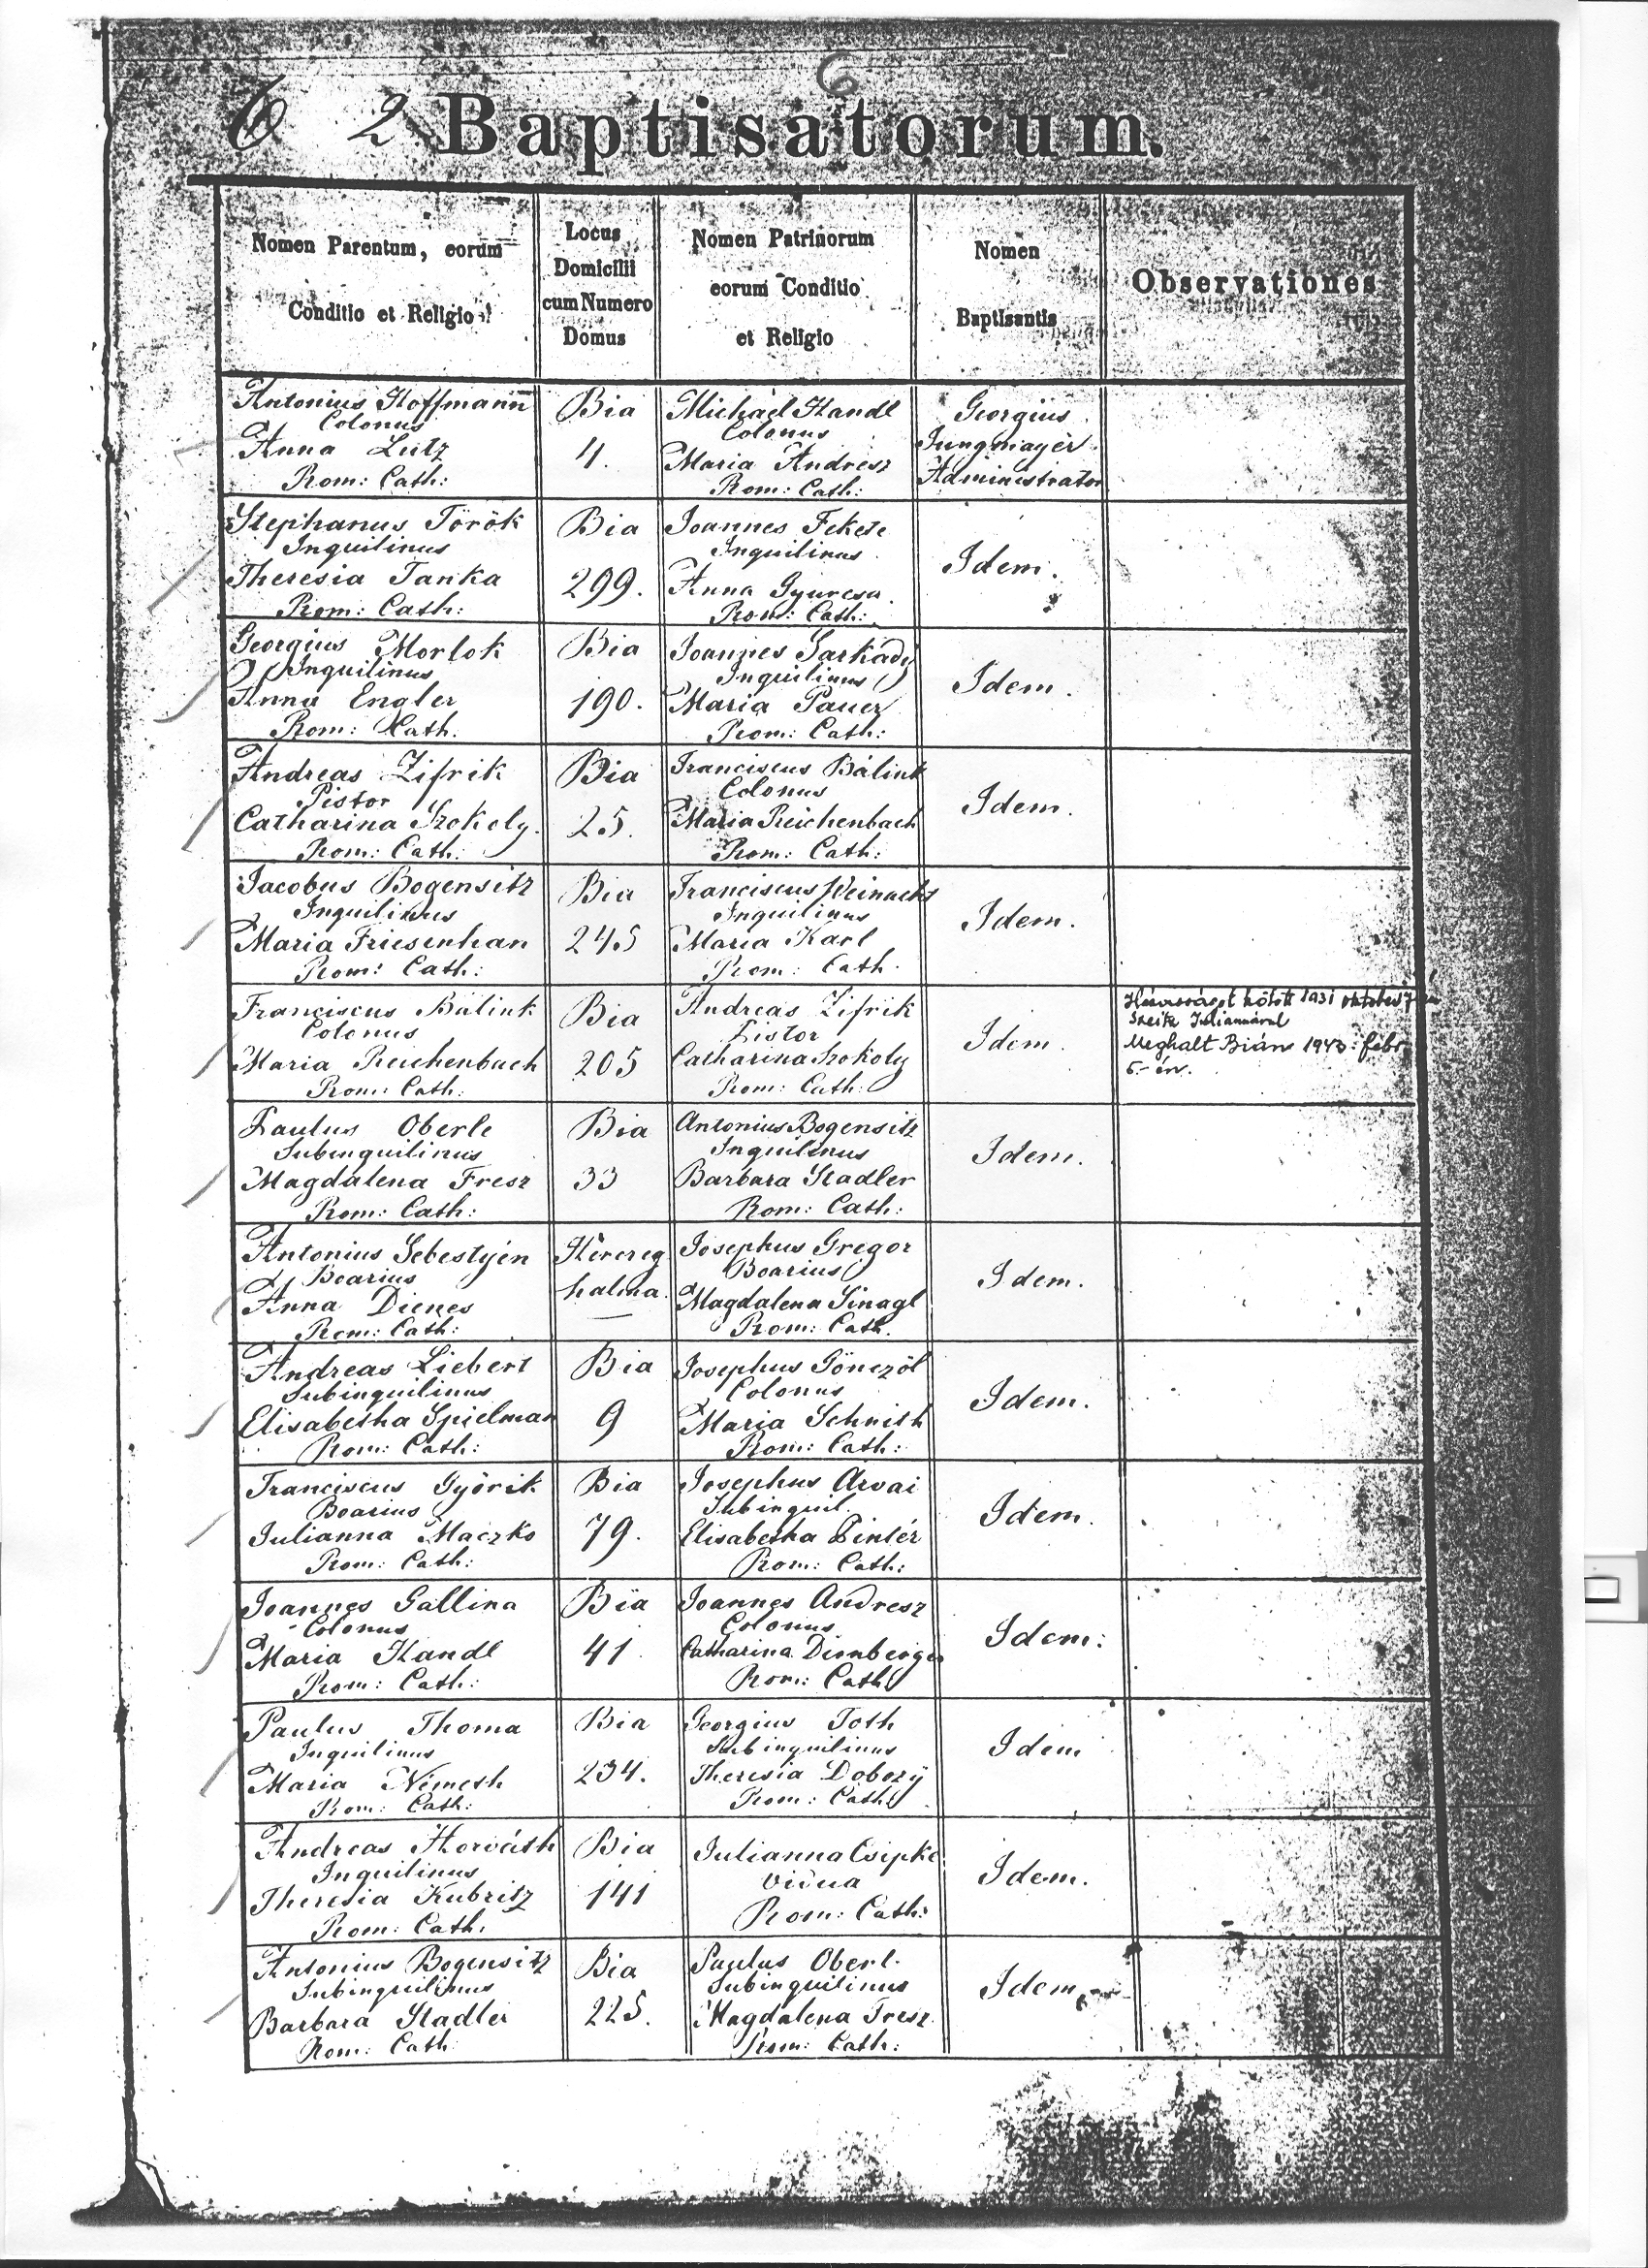 6
6 2 Baptisatorum.
Nomen Parentum, eorum
Conditio et Religio
Locus
Domicilii
cum Numero
Domus
Nomen Patrinorum
eorum Conditio
et Religio
Nomen
Baptisantis
Observationes
Antonius Hoffmann
Colonus
Anna Lutz
Rom: Cath:
Bia
4.
Michael Handl
Colonus
Maria Andresz
Rom: Cath:
Georgius
Jungmayer
Administrator
Stephanus Török
Inquilinus
Theresia Tanka
Rom: Cath:
Bia
299.
Joannes Fekete
Inquilinus
Anna
Rom: Cath:
Idem.
Georgius Morlok
Inquilinus
Anna Engler
Rom: Cath.
Bia
190.
Joannes Sarkady
Inquilinus
Maria Pauer
Rom: Cath:
Idem.
Andreas Zifrik
Pistor
Catharina Szokoly.
Rom: Cath:
Bia
25.
Franciscus Bálink
Colonus
Maria Reichenbach
Rom: Cath:
Idem.
Jacobus Bogensitz
Inquilinus
Maria Friesenhan
Rom: Cath:
Bia
245
Franciscus
Inquilinus
Maria Karl
Rom: Cath.
Idem.
Franciscus Bálink
Colonus
Maria Reichenbach
Rom: Cath:
Bia
205
Andreas Zifrik
Pistor
Catharina Szokoly
Rom: Cath:
Idem.
Házasságot kötött 1931 október
Juliannával
Meghalt Bián 1943. febr.
-én.
Paulus Oberle
Subinquilinus
Magdalena Fresz
Rom: Cath:
Bia
33
Antonius Bogensitz
Inquilinus
Barbara Stadler
Rom: Cath:
Idem.
Antonius Sebestyén
Boarius
Anna Dienes
Rom: Cath:
Herczeg
halma.
Josephus Gregor
Boarius
Magdalena Sinagl
Rom: Cath.
Idem.
Andreas Liebert
Subinquilinus
Elisabetha Spielman
Rom: Cath:
Bia
9
Josephus Gönczöl
Colonus
Maria Schnith
Rom: Cath:
Idem.
Franciscus Györik
Boarius
Julianna Maczko
Rom: Cath:
Bia
79.
Josephus Arvai
Subinquil.
Elisabetha Pintér
Rom: Cath:
Idem.
Joannes Gallina
Colonus
Maria Handl
Rom: Cath:
Bia
41
Joannes Andresz
Colonus
Catharina Dirnberger
Rom: Cath
Idem:
Paulus Thoma
Inquilinus
Maria Németh
Rom: Cath:
Bia
234.
Georgius Toth
Subinquilinus
Theresia Dobozy
Rom: Cath
Idem
Andreas Horváth
Inquilinus
Theresia Kubritz
Rom: Cath.
Bia
141
Julianna Csipke
vidua
Rom: Cath:
Idem.
Antonius Bogensitz
Subinquilinus
Barbara Stadler
Rom: Cath
Bia
225.
Paulus Oberl.
Subinquilinus
Magdalena Fresz
Rom: Cath:
Idem.